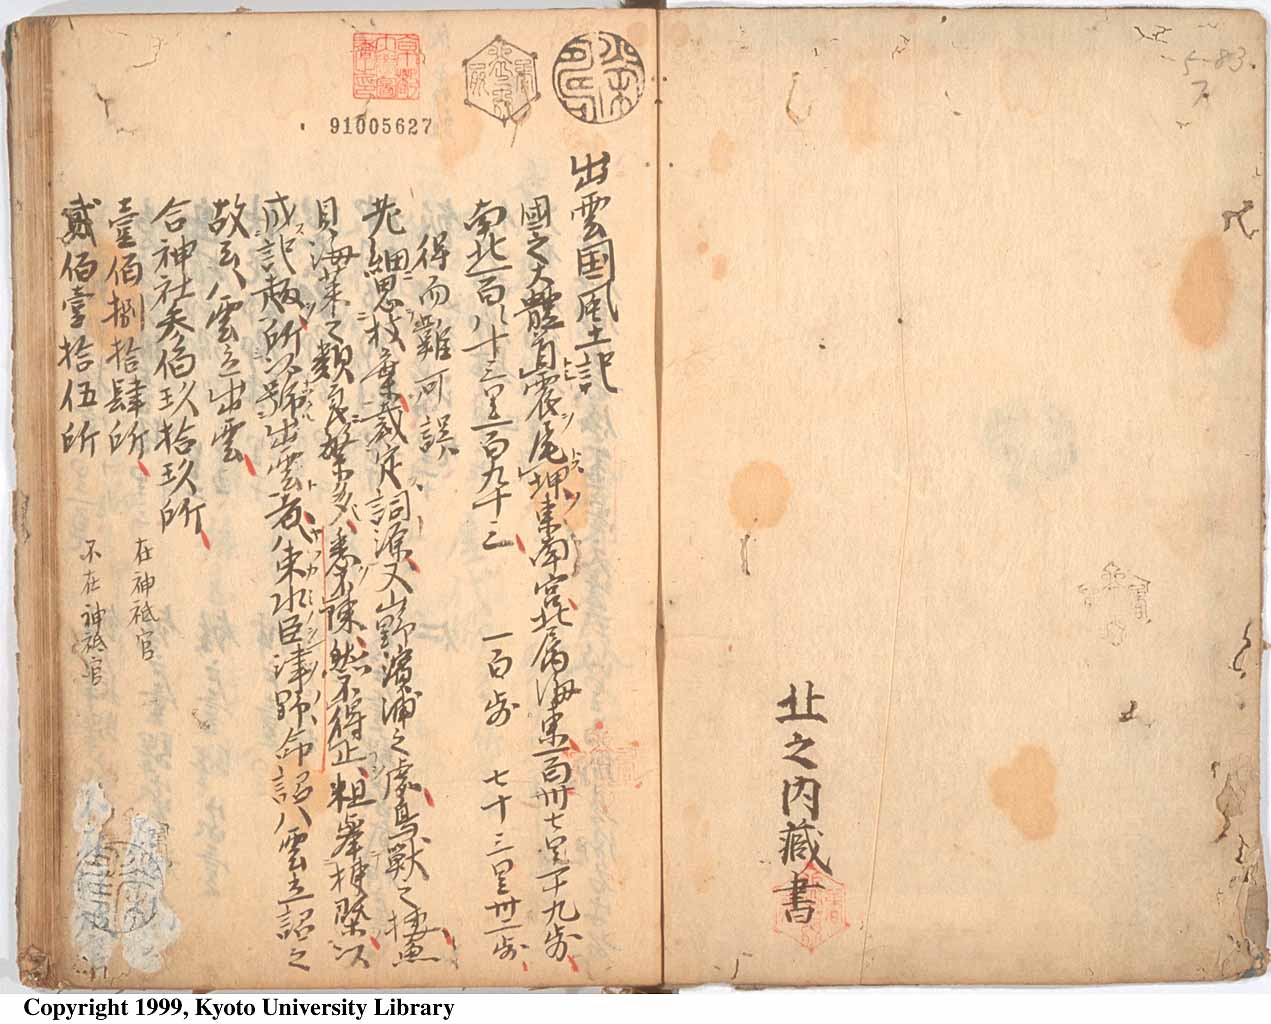 5-83
フ
北之内蔵書
91005627
出雲国風土記
國之大體首震尾坤東南宮北属海東一百卅七里一十九歩
南北一百八十三里一百九十三 一百歩 七十三里卅二歩
得而難可誤
老細思枝葉裁定詞源又山野濱浦之處鳥獣之棲魚
貝海菜之類良繁多悉不陳然不得止粗挙梗槩以
成記趣所以号出雲者八束水臣津野命詔八雲立詔之
故云八雲立出雲
合神社叁佰玖拾玖所
壹佰捌拾肆所 在神祇官
貳佰壹拾伍所 不在神祇官
Copyright 1999, Kyoto University Library